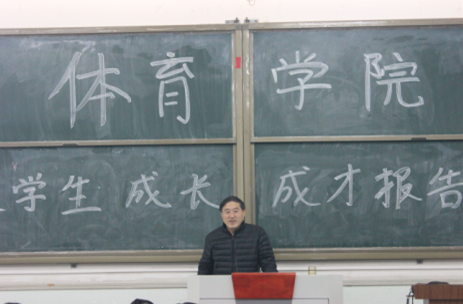 体育学院
学生成长 成才报告